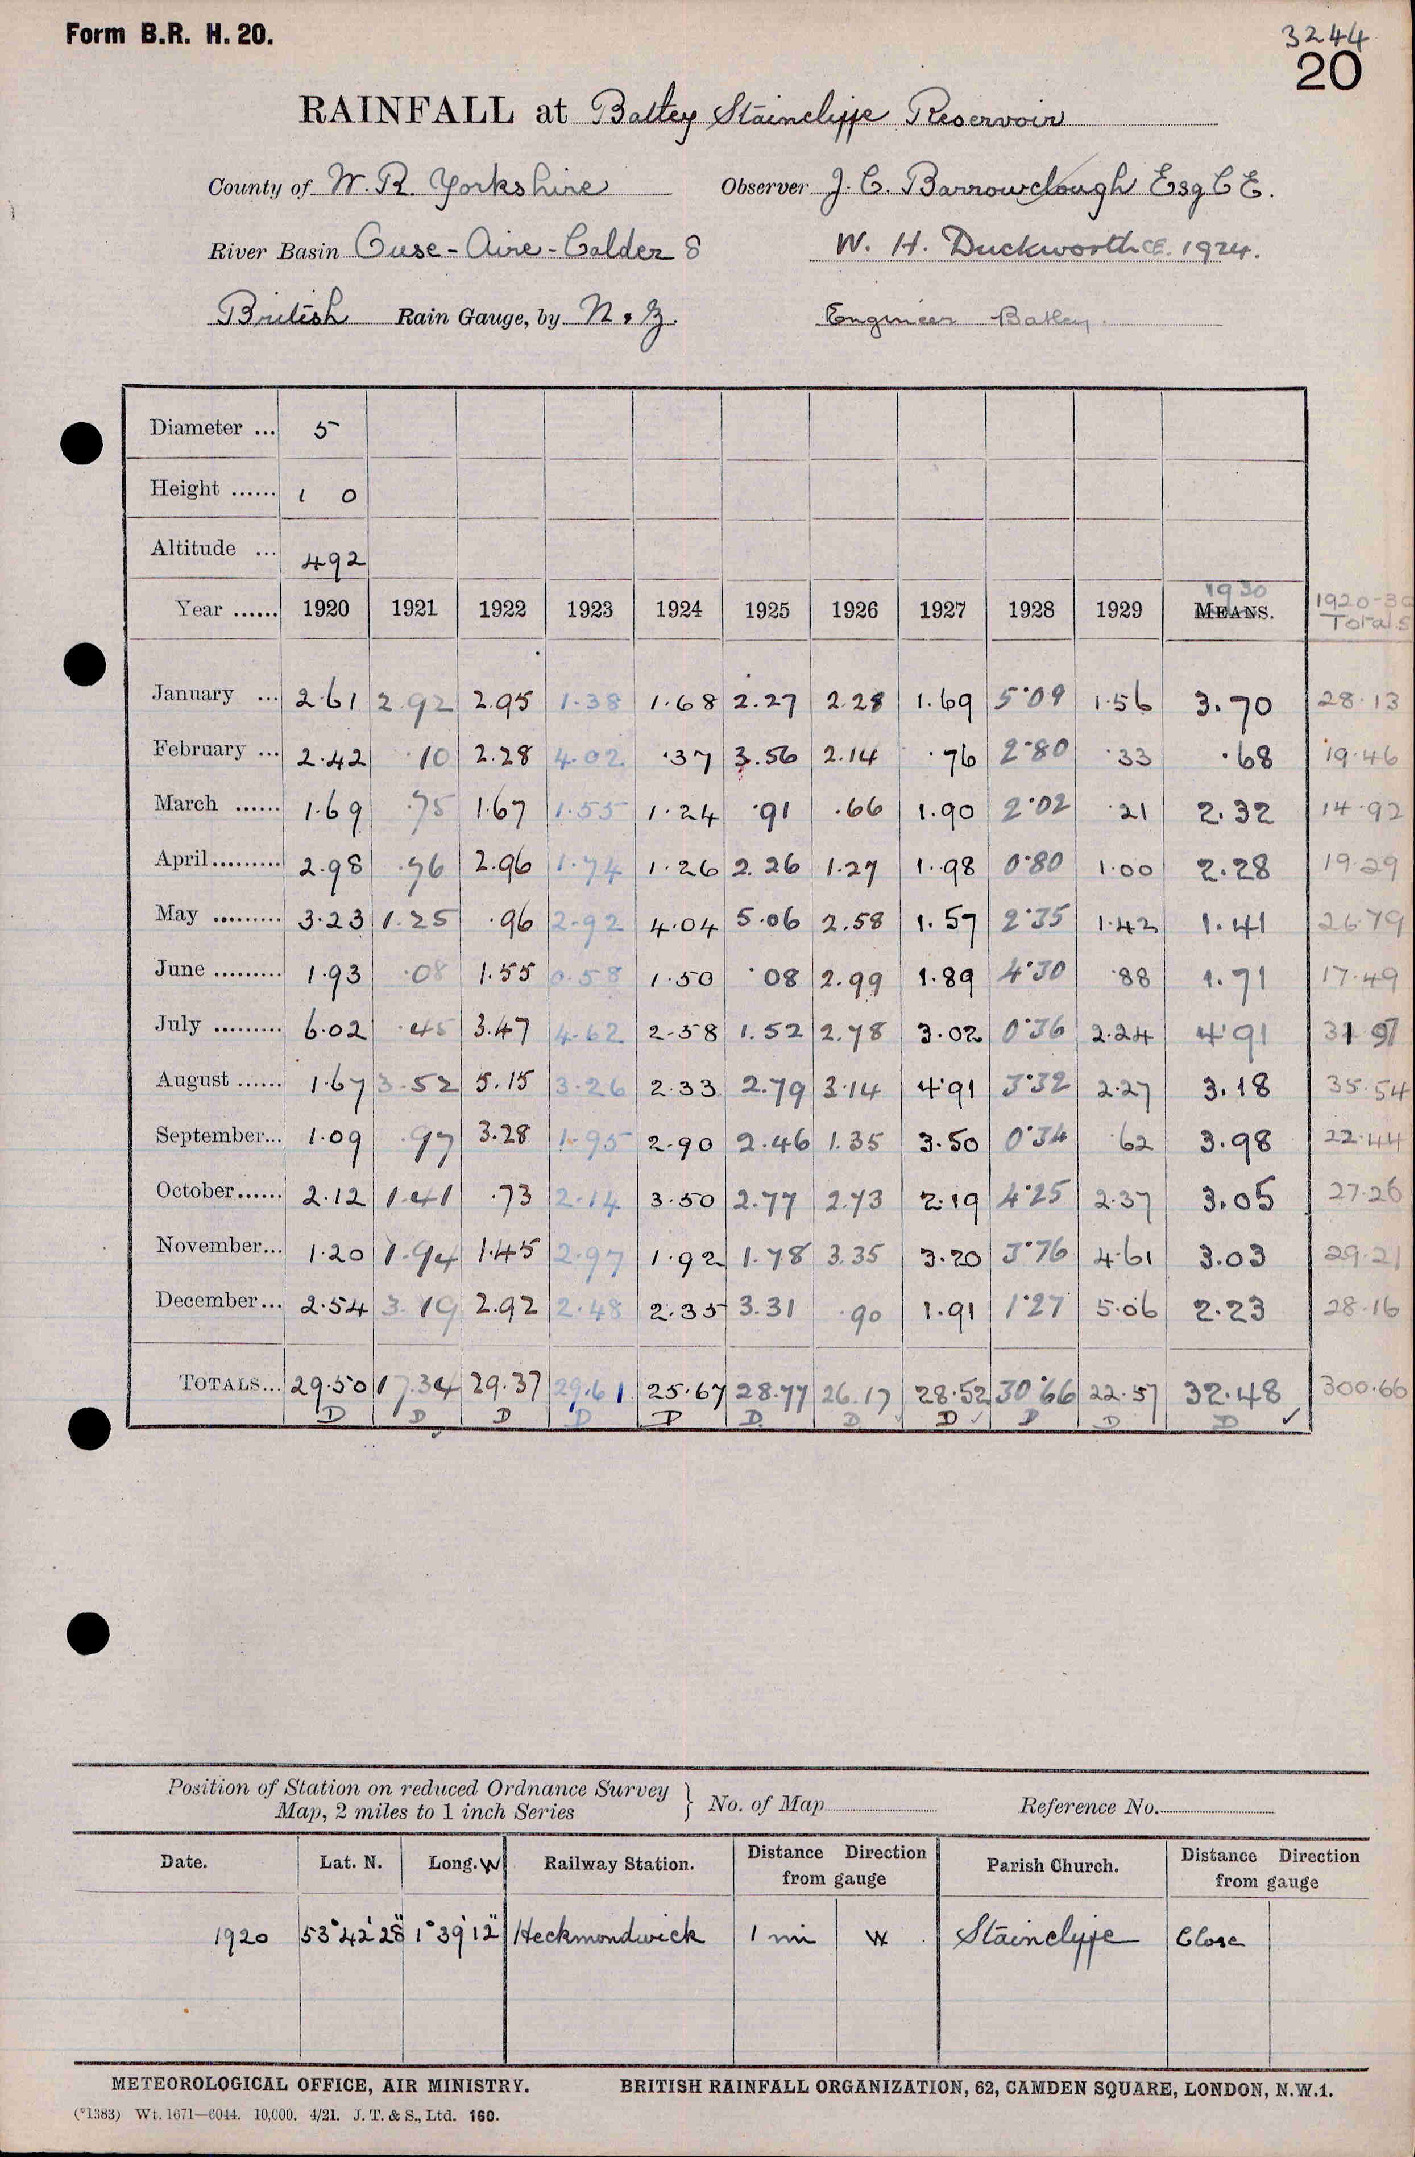 Form B.R. H. 20.
3244
20
RAINFALL at Batley Staincliffe Reservoir
County of W. R. Yorkshire Observer J. C. Barrowclough Esq C E.
River Basin Ouse - Aire - Calder 8 W. H. Duckworth C.E. 1924.
British Rain Gauge, by N & Z. Engineer Batley.
Diameter ... 5
Height ...... 1 0
Altitude ... 492
Year ...... 1920 1921 1922 1923 1924 1925 1926 1927 1928 1929 1930 MEANS. 1920-30 Totals
January ... 2.61 2.92 2.95 1.38 1.68 2.27 2.28 1.69 5.09 1.56 3.70 28.13
February ... 2.42 .10 2.28 4.02 .37 3.56 2.14 .76 2.80 .33 .68 19.46
March ...... 1.69 .75 1.67 1.55 1.24 .91 .66 1.90 2.02 .21 2.32 14.92
April ......... 2.98 .76 2.96 1.74 1.26 2.26 1.27 1.98 0.80 1.00 2.28 19.29
May ......... 3.23 1.25 .96 2.92 4.04 5.06 2.58 1.57 2.35 1.42 1.41 26.79
June ......... 1.93 .08 1.55 0.58 1.50 .08 2.99 1.89 4.30 .88 1.71 17.49
July ......... 6.02 .45 3.47 4.62 2.58 1.52 2.78 3.02 0.36 2.24 4.91 31.97
August ...... 1.67 3.52 5.15 3.26 2.33 2.79 3.14 4.91 3.32 2.27 3.18 35.54
September... 1.09 .97 3.28 1.95 2.90 2.46 1.35 3.50 0.34 .62 3.98 22.44
October...... 2.12 1.41 .73 2.14 3.50 2.77 2.73 2.19 4.25 2.37 3.05 27.26
November... 1.20 1.94 1.45 2.97 1.92 1.78 3.35 3.20 3.76 4.61 3.03 29.21
December... 2.54 3.19 2.92 2.48 2.35 3.31 .90 1.91 1.27 5.06 2.23 28.16
TOTALS... 29.50 17.34 29.37 29.61 25.67 28.77 26.17 28.52 30.66 22.57 32.48 300.66
D D D D D D. D ✓ D ✓ D D D ✓
Position of Station on reduced Ordnance Survey
Map, 2 miles to 1 inch Series } No. of Map Reference No.
Date. Lat. N. Long. W Railway Station. Distance Direction from gauge Parish Church. Distance Direction from gauge
1920 53°42'28" 1°39'12" Heckmondwick 1 mi W Staincliffe Close
METEOROLOGICAL OFFICE, AIR MINISTRY. BRITISH RAINFALL ORGANIZATION, 62, CAMDEN SQUARE, LONDON, N.W.1.
(*1383) Wt. 1671—6044. 10,000. 4/21. J. T. & S., Ltd. 160.